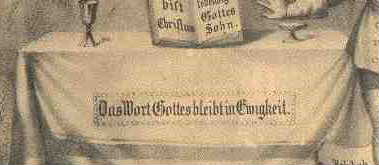 bist
Christus
Gottes
Sohn.
Das Wort Gottes bleibt in Ewigkeit.